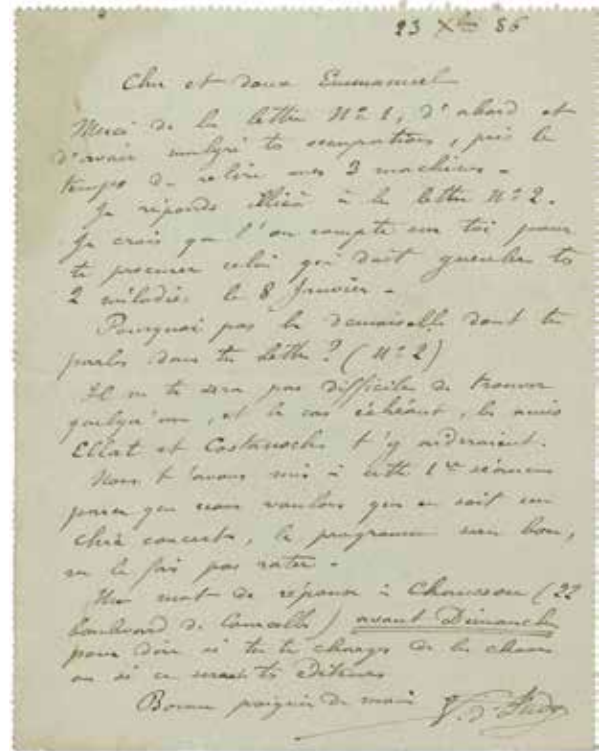 23 Xbre 86
Cher et doux Emmanuel
Merci de la lettre Nº 1, d'abord et
d'avoir malgré tes occupations, pris le
temps de relire mes 3 machines -
Je réponds illico à la lettre Nº 2.
Je crois que l'on compte sur toi pour
te procurer celui qui doit gueuler tes
2 mélodies le 8 Janvier -
Pourquoi pas la demoiselle dont tu
parles dans ta lettre ? (Nº 2)
Il ne te sera pas difficile de trouver
quelqu'un, et le cas échéant, les amis
et t'y aideraient.
Nous t'avons mis à cette 1re séance
parce que nous voulons que ce soit un
chic concerts, le programme sera bon,
ne le fais pas rater -
Un mot de réponse à Chausson (22
boulevard de Courcelles) avant Dimanche
pour dire si tu te charges de la chose
ou si ce seront tes éditeurs
Bonne poignée de main V. d'Indy